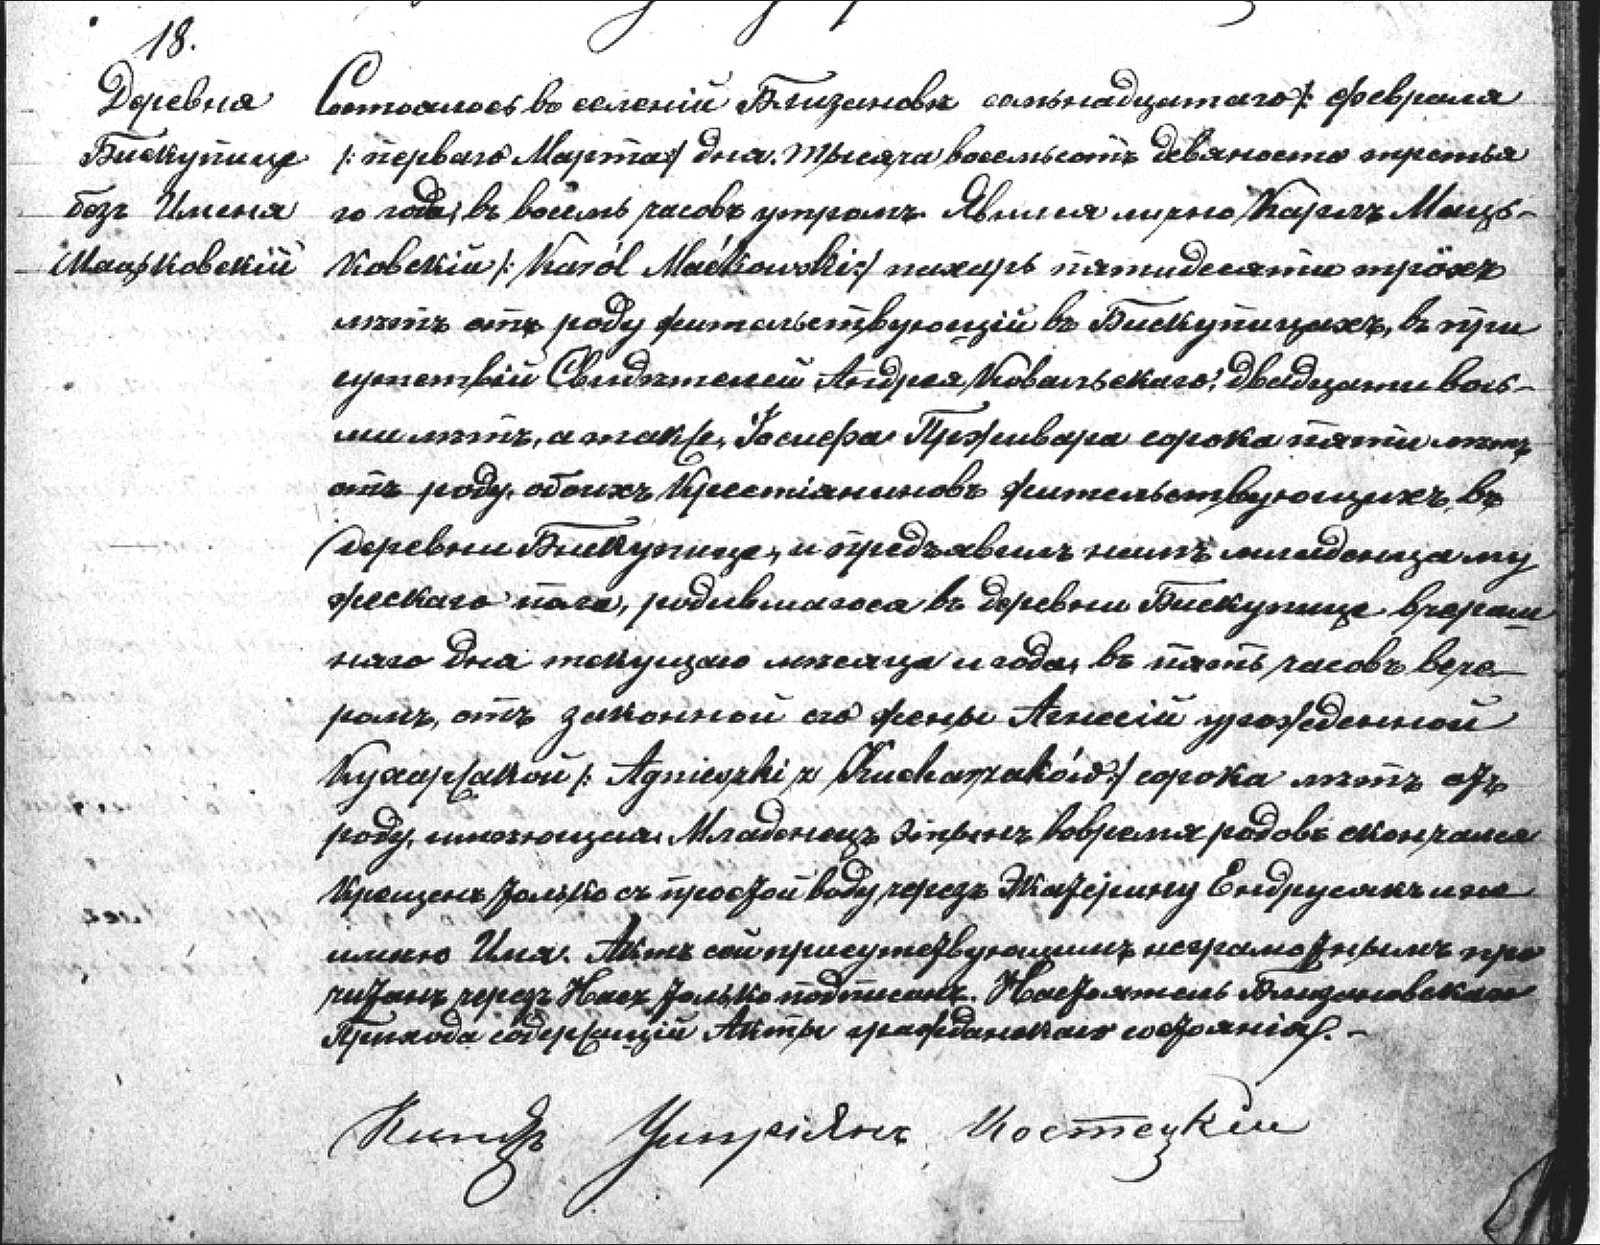 18.
Деревня
Бискупице
безъ Имена
Мацьковскій
Состоялось во селеніи Близановѣ семьнадцатаго /: февраля
/: перваго Марта :/ дня. тысяча восемьсотъ девяносто третья
го года, въ восемь часовъ утромъ. Явился лично Кароль Маць-
ковскій /: Karól Maćkowski :/ пахарь пятидесяти трёхъ
лѣтъ отъ роду жительствующій въ Бискупицахъ, въ при
сутствіи Свидѣтелей Андрея Ковальскаго, двадцати вось-
ми лѣтъ, а также, Іосифа Прживара сорока пяти лѣтъ
отъ роду, обоихъ Крестіяниновъ жительствующихъ въ
деревни Бискупице, и предъявилъ намъ младенца му
жескаго пола, родившагося въ деревни Бискупице вчераш
няго дня текущаго мѣсяца и года, въ пять часовъ вече-
ромъ, отъ законной его жены Агнесіи урожденной
Кухаржакой /: Agnieszki z Kucharzaków :/ сорока лѣтъ отъ
роду, имѣющія. Младенецъ этынъ вовремя родовъ скончался
Крещенъ только съ простой воду черезъ Экатерину Ендрусякъ и не
имѣю Имя. Актъ сей присутствующимъ неграмотнымъ про
читанъ черезъ Насъ только подписанъ. Настоятель Близановскаго
Прихода содержащій Акты гражданскаго состоянія. -
Ксендзъ Ципріянъ Костецкій